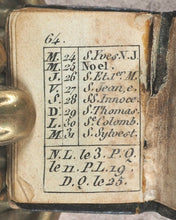 64.
M. 24 S. Yves N.J.
M. 25 Noel.
J. 26 S. Et. 1.er M.
V. 27 S. Jean, e.
S. 28 SS. Innoce.
D. 29 S. Thomas.
L. 30 S. Colomb.
M. 31 S. Sylvest.
N. L. le 3. P. Q.
le 11. P. L. 19.
D. Q. le 25.